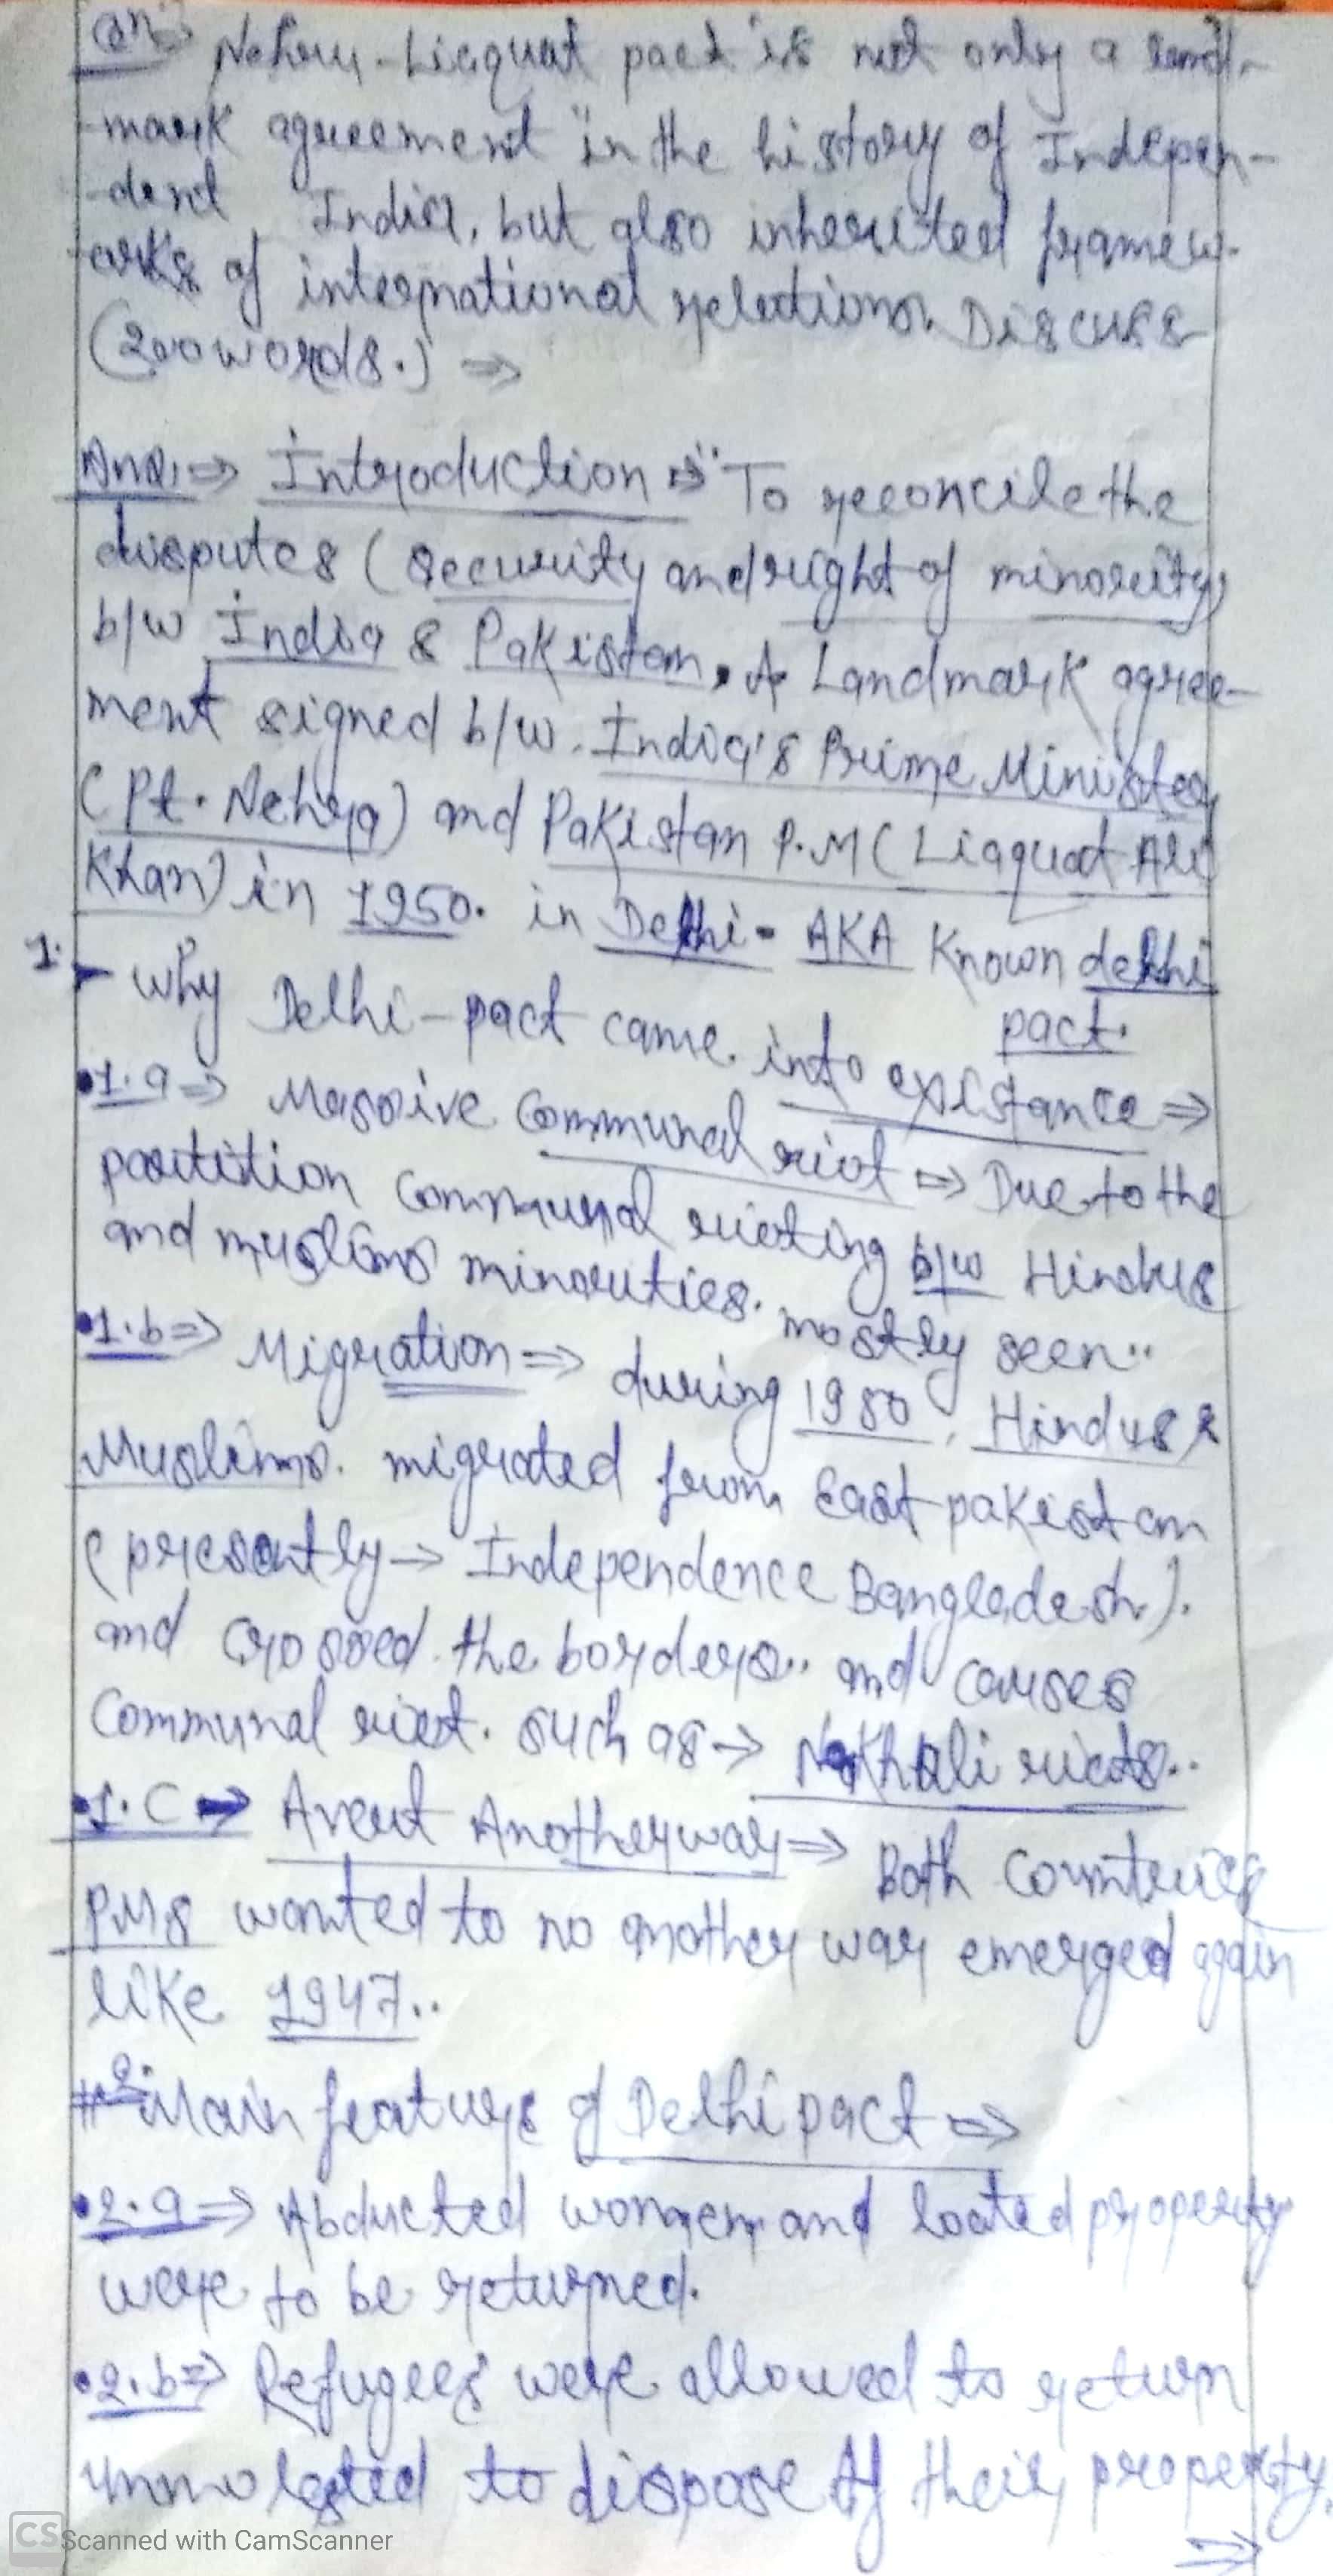 Qn⇒ Nehru-Liaquat pact is not only a land-
-mark agreement in the history of Indepen-
-dent India, but also inherited framew-
-orks of international relations. Discuss
(200 words.) ⇒
Ans.⇒ Introduction ⇒ "To reconcile the
disputes (security and right of minority)
b/w India & Pakistan. A Landmark agree-
ment signed b/w. India's Prime Minister
(Pt. Nehru) and Pakistan P.M (Liaquat Ali
Khan) in 1950. in Delhi- AKA Known delhi
pact.
1. Why Delhi-pact came into existance ⇒
•1.a ⇒ Massive Communal riot ⇒ Due to the
partition communal rioting b/w Hindus
and muslims minorities. mostly seen..
•1.b ⇒ Migration ⇒ during 1950, Hindus &
Muslims. migrated from East pakistan
(presently → Independence Bangladesh).
and crossed the borders.. and causes
Communal riot. such as → Nokhali riots..
•1.C → Avert Another war ⇒ Both Countries
PMs wanted to no another war emerged again
like 1947..
#2. Main features of Delhi pact ⇒
•2.a ⇒ Abducted women and looted property
were to be returned.
•2.b ⇒ Refugees were allowed to return
unmolested to dispose of their property.
⇒
CS Scanned with CamScanner